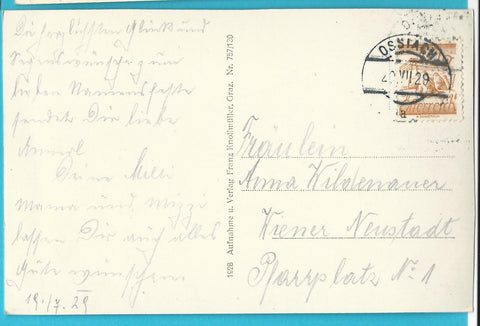 Die herzlichsten Glück und
Segenswünsche zum
lieben Namensfeste
sendet Dir liebe
Annerl
Deine Melli
Mama und Mizzi
lassen Dir auch alles
Gute wünschen.
19./7. 29
1928 Aufnahme u. Verlag Franz Knollmüller, Graz. Nr. 757/130
OSSIACH
20.VII.29
a
Fräulein
Anna Wildenauer
Wiener Neustadt
Pfarrplatz No 1